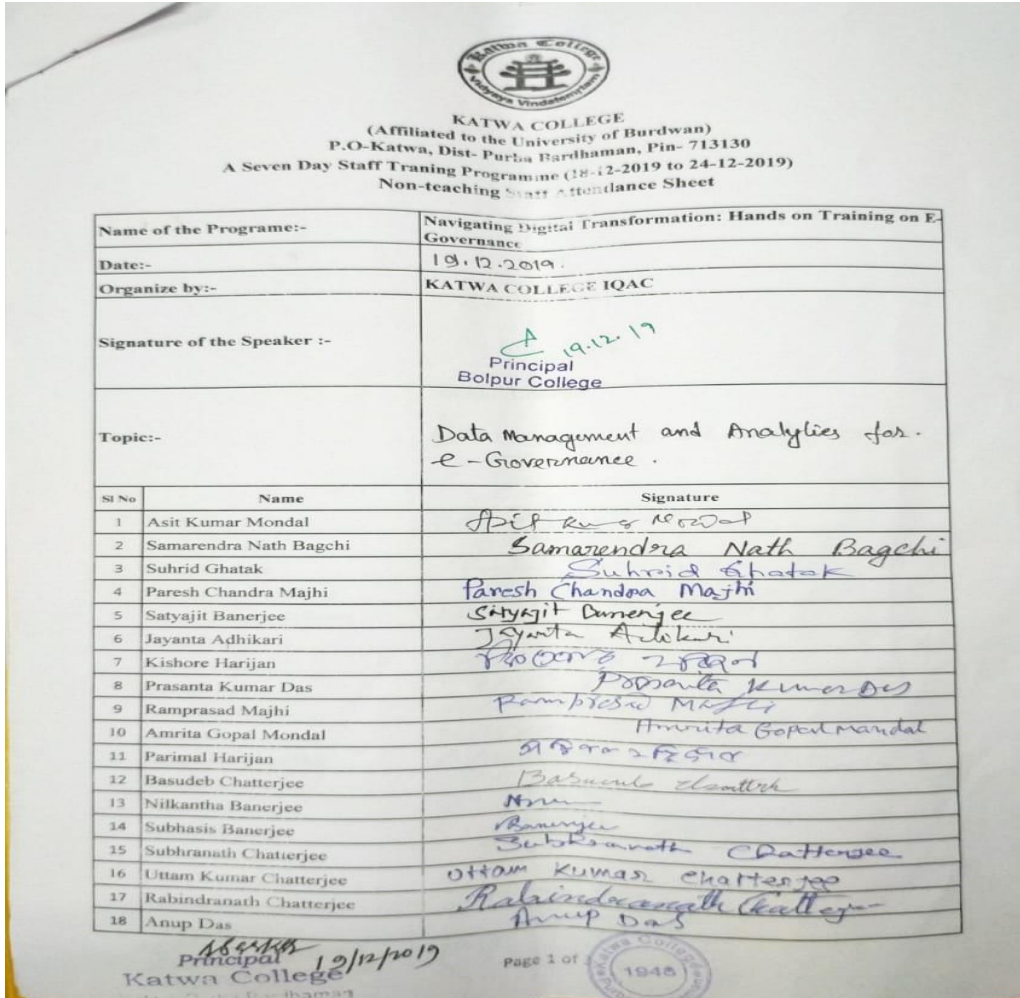 Katwa College
Vidyaya Vindatemritam
KATWA COLLEGE
(Affiliated to the University of Burdwan)
P.O-Katwa, Dist- Purba Bardhaman, Pin- 713130
A Seven Day Staff Traning Programme (18-12-2019 to 24-12-2019)
Non-teaching Staff Attendance Sheet
Name of the Programe:- Navigating Digital Transformation: Hands on Training on E-
Governance
Date:- 19.12.2019.
Organize by:- KATWA COLLEGE IQAC
Signature of the Speaker :- 19.12.19
Principal
Bolpur College
Topic:- Data Management and Analylies for.
e-Governance.
Sl No Name Signature
1 Asit Kumar Mondal
2 Samarendra Nath Bagchi Samarendra Nath Bagchi
3 Suhrid Ghatak Suhrid Ghatak
4 Paresh Chandra Majhi Paresh Chandra Majhi
5 Satyajit Banerjee Satyajit Banerjee
6 Jayanta Adhikari Jayanta Adhikari
7 Kishore Harijan
8 Prasanta Kumar Das Prosanta Kumar Das
9 Ramprasad Majhi Ramprasad Majhi
10 Amrita Gopal Mondal Amrita Gopal Mandal
11 Parimal Harijan
12 Basudeb Chatterjee
13 Nilkantha Banerjee
14 Subhasis Banerjee Banerjee
15 Subhranath Chatterjee Subhranath Chatterjee
16 Uttam Kumar Chatterjee Uttam Kumar Chatterjee
17 Rabindranath Chatterjee Rabindranath Chatterjee
18 Anup Das Anup Das
Principal 19/12/2019
Katwa College
Page 1 of
Katwa College
1948